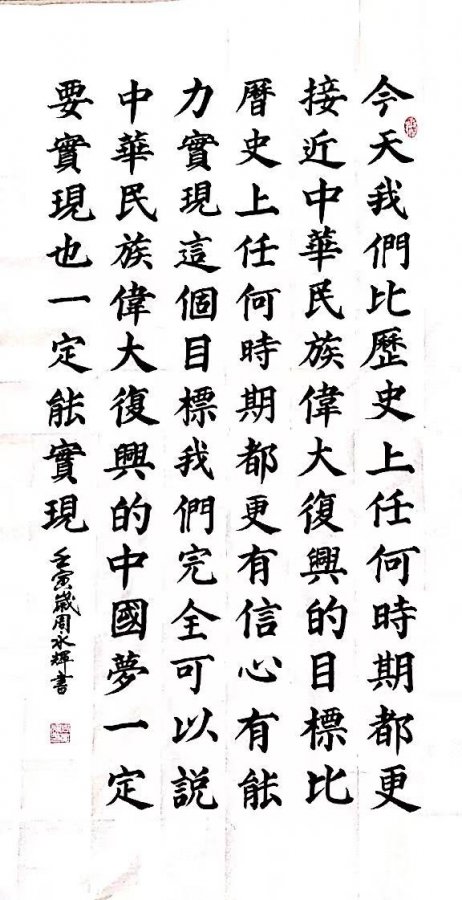 今天我們比歷史上任何時期都更
接近中華民族偉大復興的目標比
曆史上任何時期都更有信心有能
力實現這個目標我們完全可以説
中華民族偉大復興的中國夢一定
要實現也一定能實現
壬寅歲周永輝書